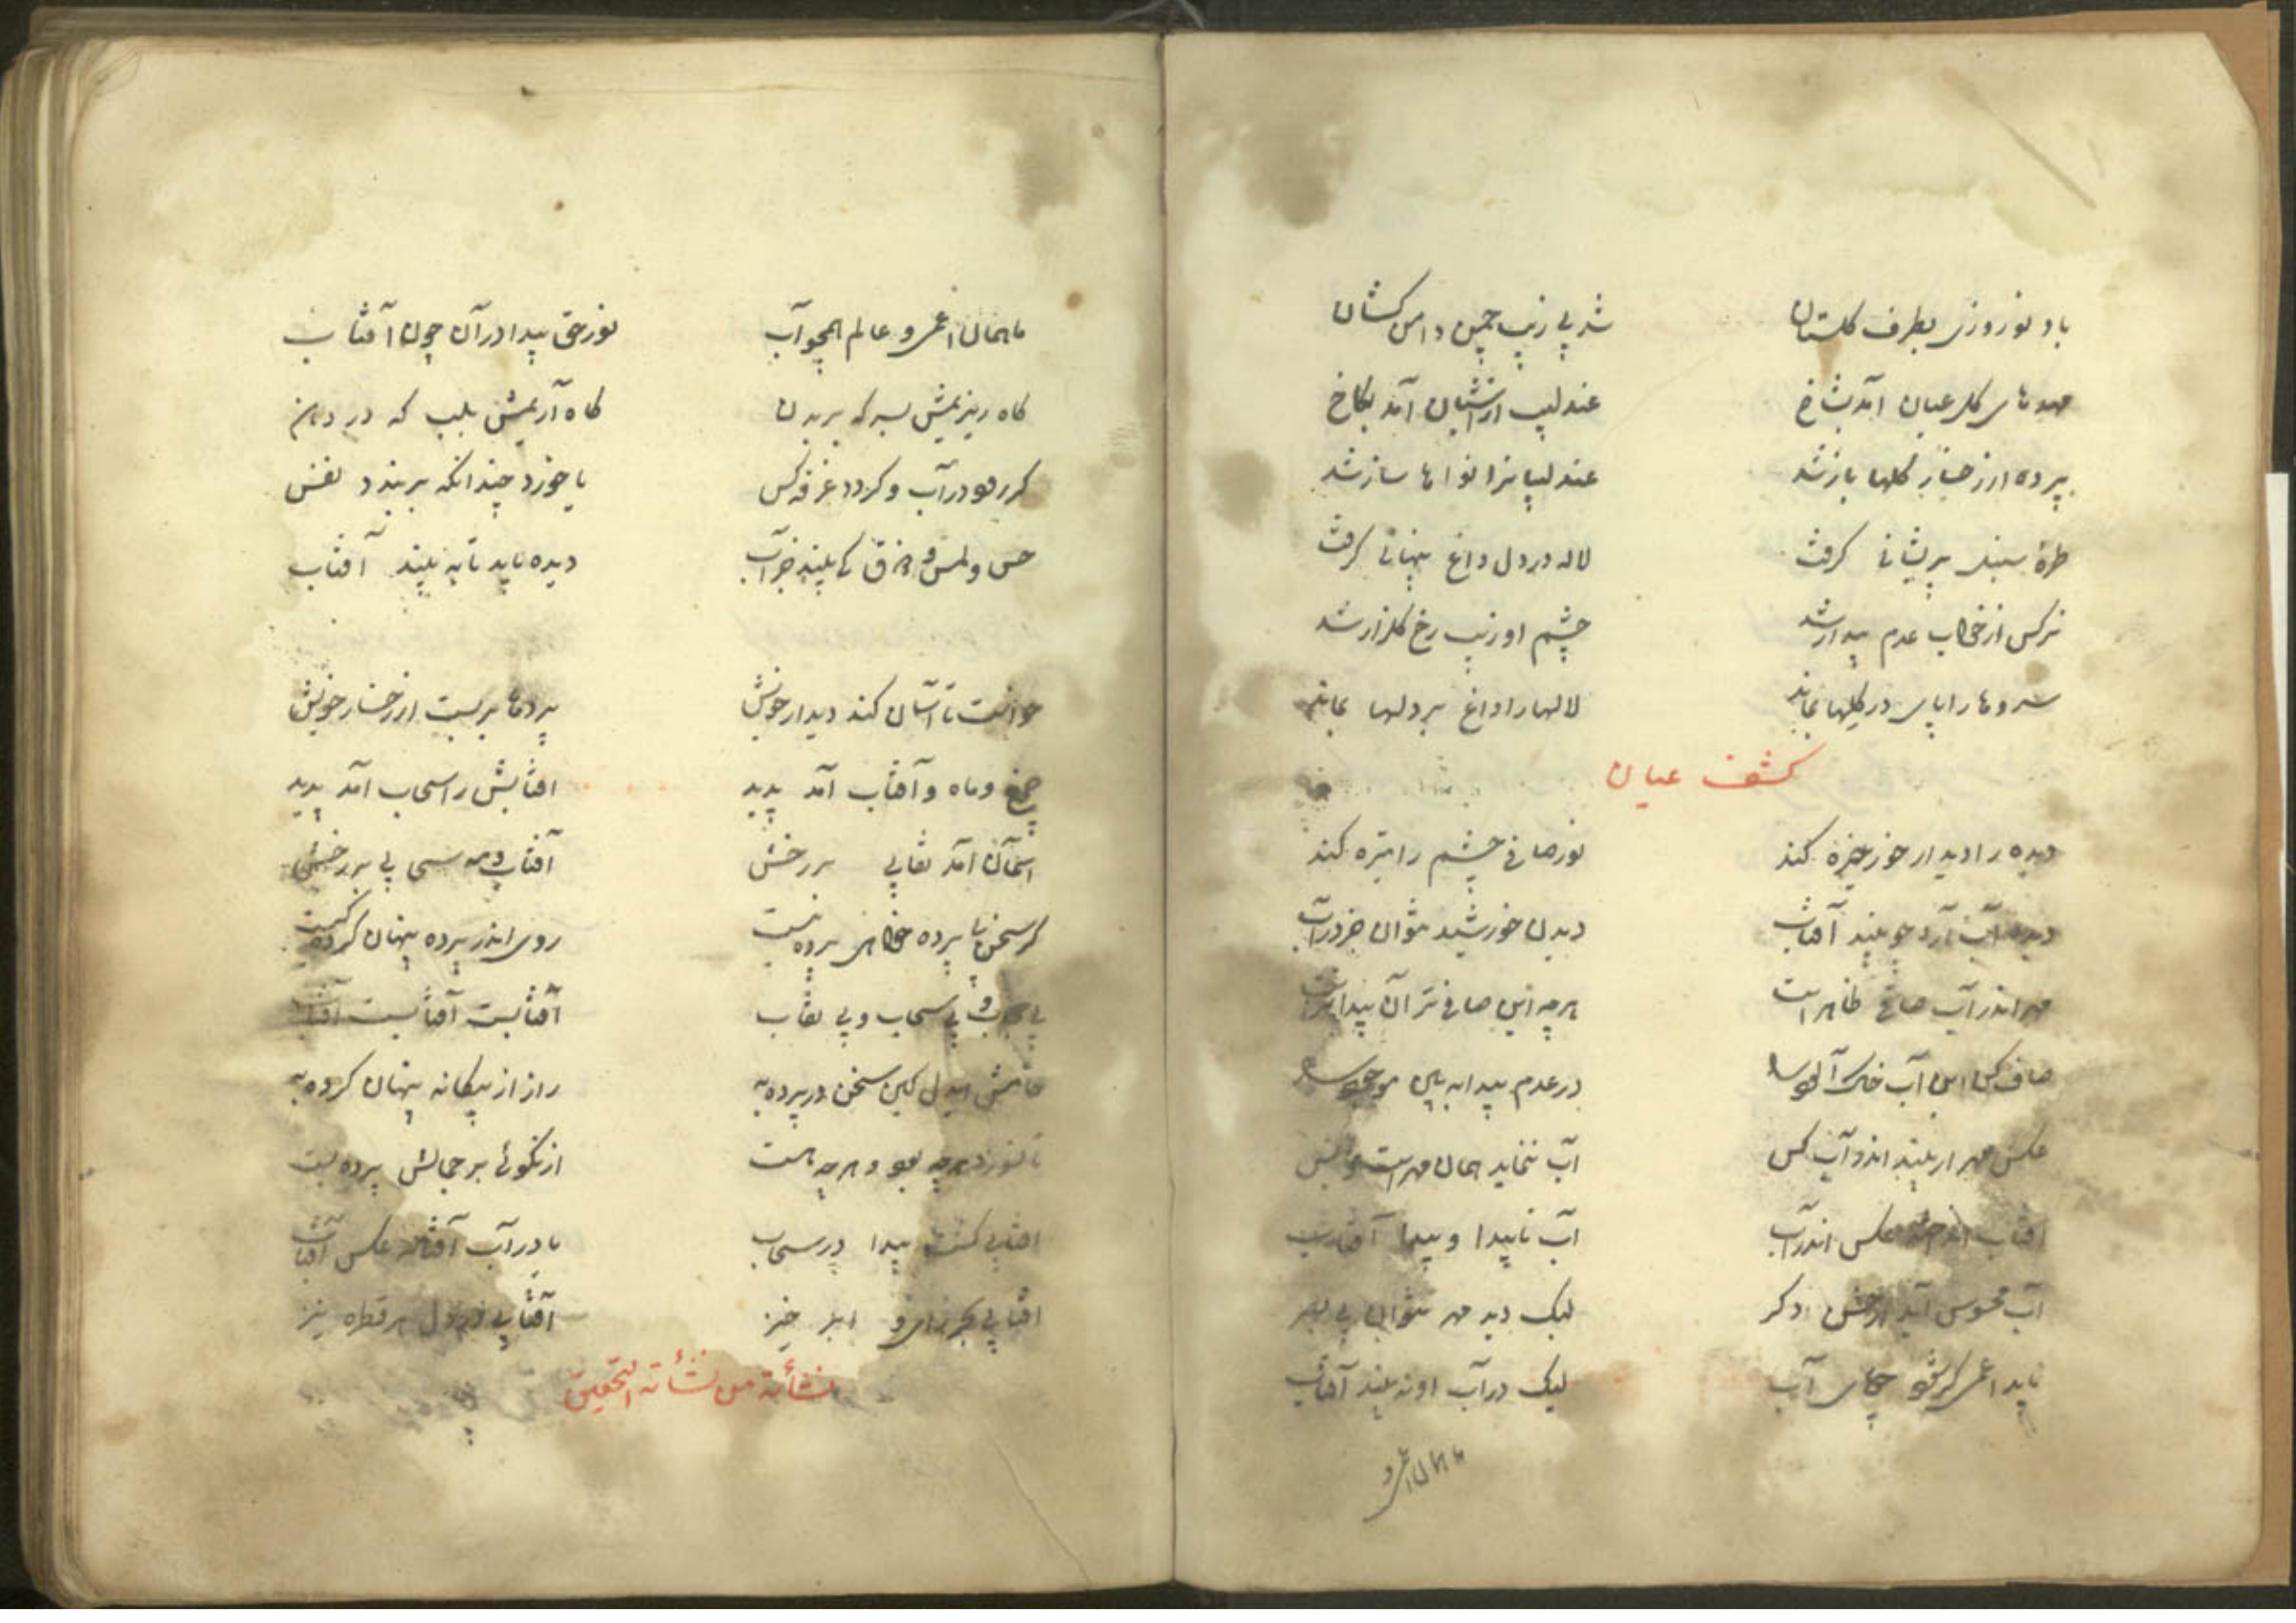 باد نوروزی بطرف گلستان شد پی زیب چمن دامن کشان
مهدهای گل عیان آمد بشاخ عندلیب از آشیان آمد بکاخ
پرده از رخسار گلها باز شد عندلیبانرا نواها ساز شد
طرهٔ سنبل پریشانی گرفت لاله در دل داغ پنهانی گرفت
نرکس از خواب عدم بیدار شد چشم او زیب رخ گلزار شد
سروها را پای در گلها بماند لالها را داغ بر دلها بماند
کشف عیان
دیده را دیدار خور خیره کند نور صافی چشم را تیره کند
دیده آب آرد چو بیند آفتاب دیدن خورشید نتوان جز در آب
مهر اندر آب صافی ظاهر است هر چه این صافی تر آن پیداتر است
صاف کن این آب خاک آلود را در عدم پیدا ببین موجود را
عکس مهر ار بیند اندر آب کس آب ننماید همان مهر است و بس
افتاب عکس اندر آب آب ناپیدا و پیدا آفتاب
آب محسوس آید دکر لیک دید مهر نتوان بی بصر
یابد اعمی کر شود جای آب لیک در آب او نه بیند آفتاب
ما همان اعمی و
ما همان اعمی و عالم همچو آب نور حق پیدا در آن چون آفتاب
کاه ریزیمش بسر که بر بدن کاه آریمش بلب که در دهن
کر رود در آب و کردد غرقه کس یا خورد چندانکه بربندد نفس
حس و لمس و ذوق کی بیند جز آب دیده باید تا به بیند آفتاب
خواست تا آسان کند دیدار خویش پردها بر بست از رخسار خویش
چرخ و ماه و آفتاب آمد پدید افتابش را سحاب آمد پدید
آسمان آمد نقابی بر رخش آفتاب و مه سحابی بر رخش
کر سخن با پرده خواهی پرده نیست روی اندر پرده پنهان کرده کیست
بی حجاب و بی سحاب و بی نقاب آفتابست آفتابست آفتاب
خامش ایدل کاین سخن در پرده به راز از بیکانه پنهان کرده به
تا نسوزد هر چه بود و هر چه هست از نکوئی بر جمالش پرده بست
افتابی کشت پیدا در سحاب یا در آب عکس آفتاب
افتابی بحر زای و ابر خیز آفتابی در دل هر قطره نیز
نشأة من نشأة التحقیق